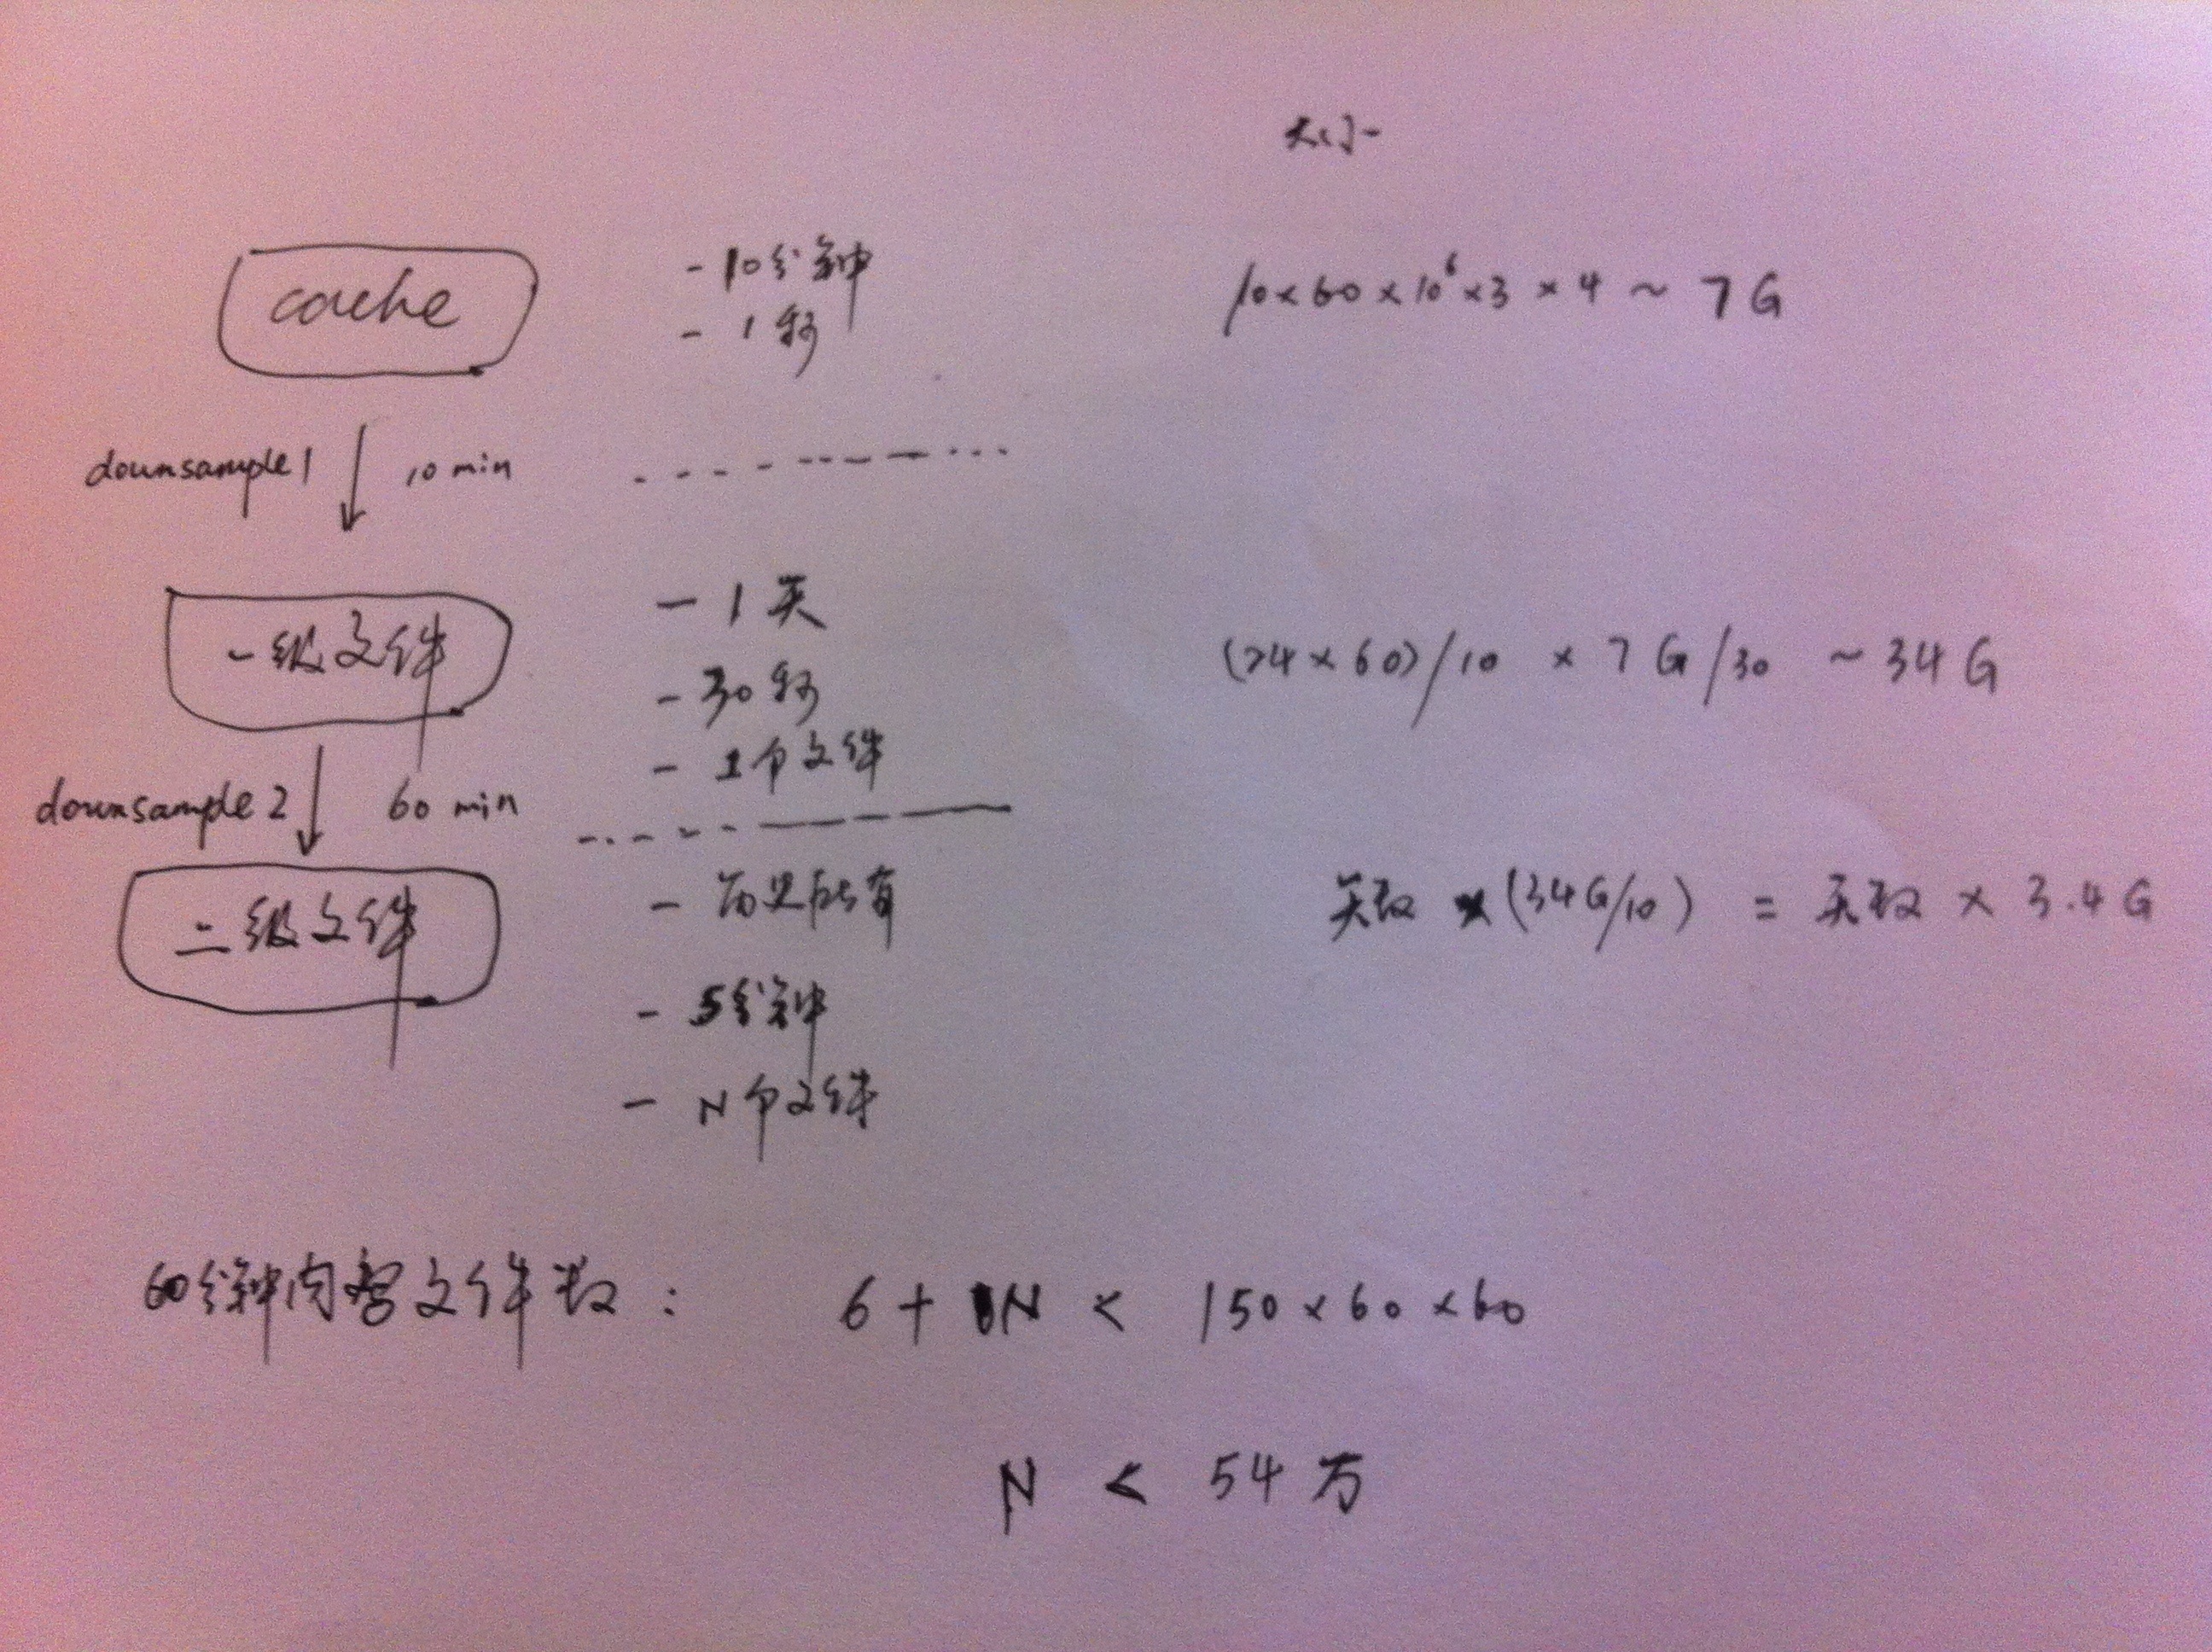 大小
cache
- 10分钟
- 1秒
10×60×10⁶×3×4 ~ 7G
downsample1
10 min
一级文件
- 1天
- 30秒
- 1个文件
(24×60)/10 × 7G/30 ~ 34G
downsample2
60 min
二级文件
- 历史所有
- 5分钟
- N个文件
天数 × (34G/10) = 天数 × 3.4G
60分钟内写文件数: 6+1N < 150×60×60
N < 54万